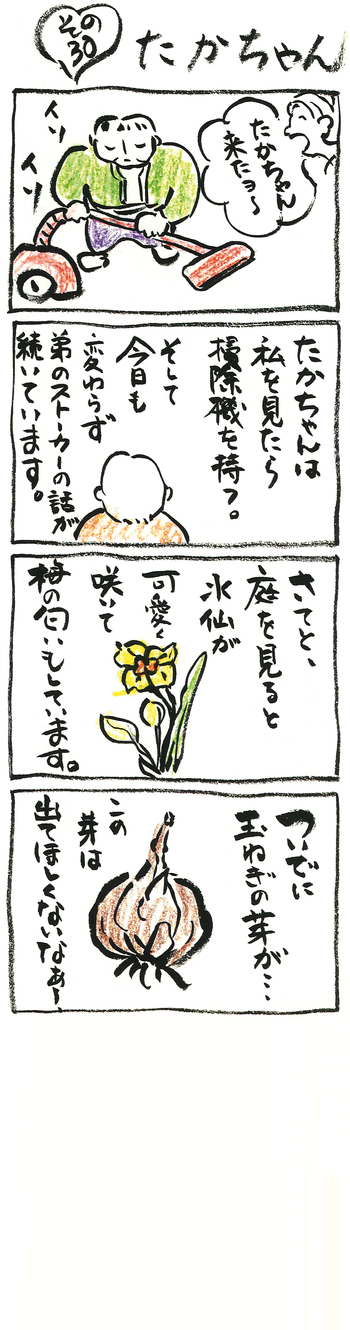 その
30
たかちゃん
たかちゃん
来たヨ〜
イソ
イソ
たかちゃんは
私を見たら
掃除機を持つ。
そして
今日も
変わらず
弟のストーカーの話が
続いています。
さてと、
庭を見ると
水仙が
可愛く
咲いて
梅の匂いもしています。
ついでに
玉ねぎの芽が…
この
芽は
出てほしくないなぁ〜